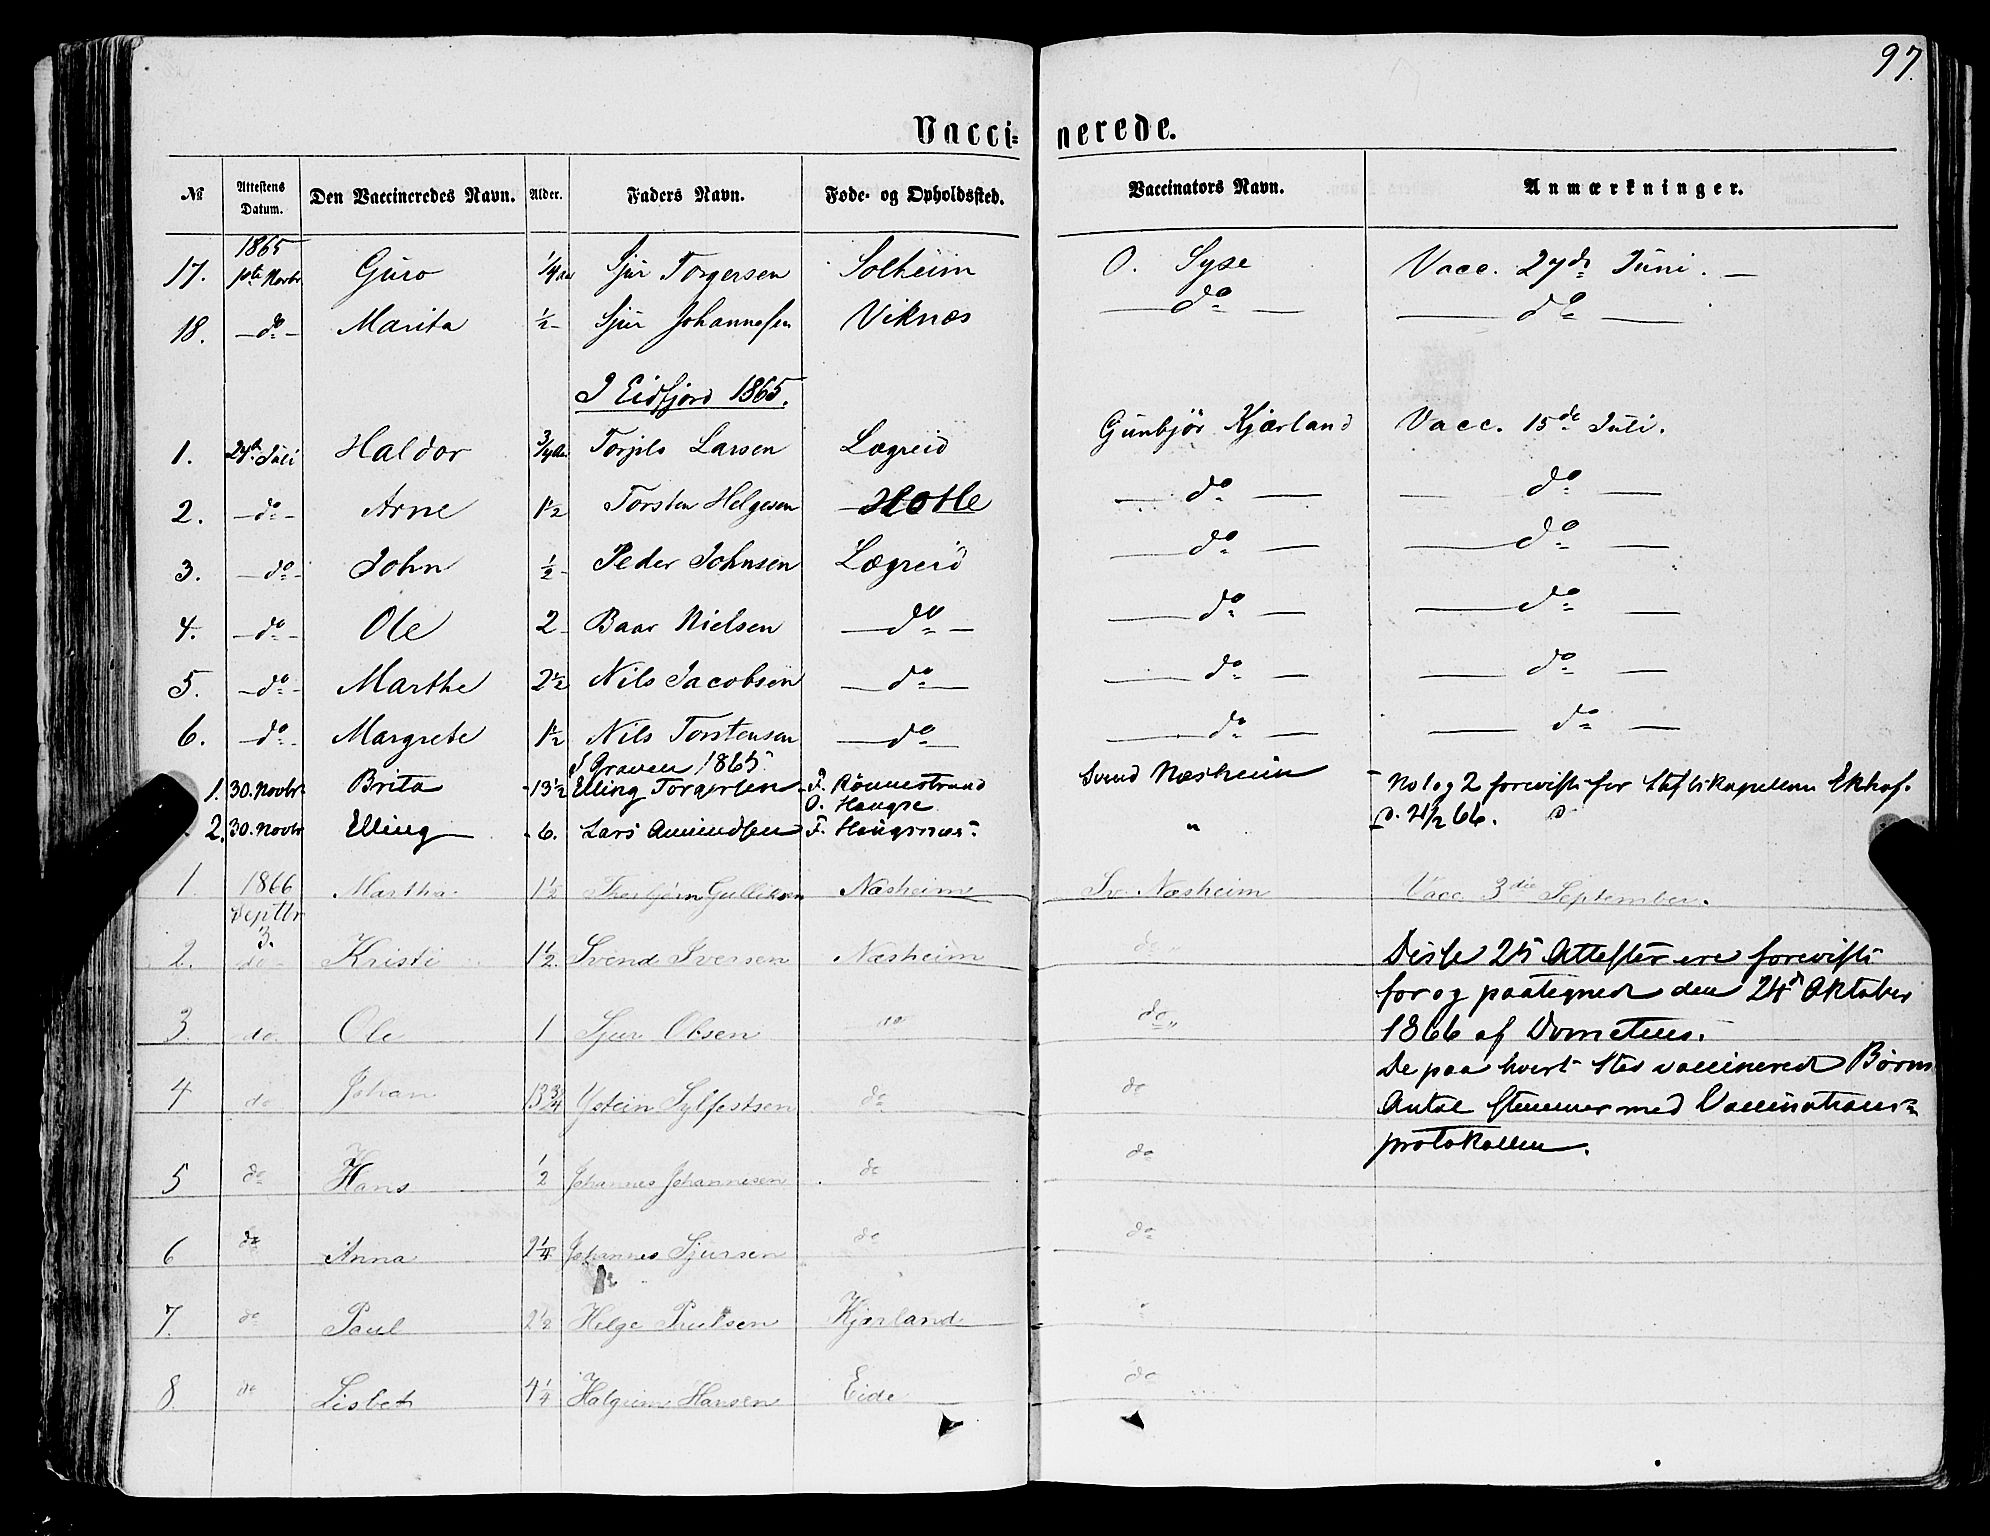 97.
Vacci- nerede.
№ Attestens Datum. Den Vaccineredes Navn. Alder. Faders Navn. Føde- og Opholdssted. Vaccinators Navn. Anmærkninger.
1865
17. 1ste Novbr Guro 1/4 Aar Sjur Torgersen Solheim O. Syse Vacc. 27de Juni. —
18. —do— Marita ½ — Sjur Johannesen Viknæs — do — — do —
I Eidfjord 1865.
1. 24de Juli Haldor 3/4 Aar Torjils Larsen Lægreid Gunbjør Kjærland Vacc. 15de Juli.
2. —do— Arne 1½ Torsten Helgesen Hotle — do — — do —
3. —do— John ½ — Peder Johnsen Lægreid — do — — do —
4. —do— Ole 2 — Baar Nielsen — do — — do — — do —
5. —do— Marthe 2½ Nils Jacobsen — do — — do — — do —
6. —do— Margrete 1½ Nils Torstensen — do — — do — — do —
I Graven 1865.
1. 30. Novbr Brita 13½ Elling Torgersen F. Rönnestrand Svend Næsheim No 1 og 2 foreviste for Stiftskapellan Ekhof.
O. Haugse
2. 30. Novbr Elling 6. Lars Amundsen F. Haugsnæs. " d. 21/2 66.
1. 1866 Martha 1½ Thorbjørn Gulliksen Næsheim Sv. Næsheim Vacc. 3die September.
Septbr
3.
2. do Kristi 1½ Svend Iversen Næsheim do " Disse 25 Attester ere foreviste
for og paategned den 24d Oktober
3. do Ole 1 Sjur Olsen do do " 1866 af Domstens.
De paa hvert Sted vaccinered Børns
4 do Johan 13 3/4 Ystein Sylfestsen do do Antal stemmer med Vaccinations-
protokollen.
5 do Hans ½ Johannes Johannesen do do
6 do Anna 2¼ Johannes Sjursen do do
7. do Paul 2½ Helge Paulsen Kjærland "
8 do Lisbet 4¼ Halgrim Hansen Eide do